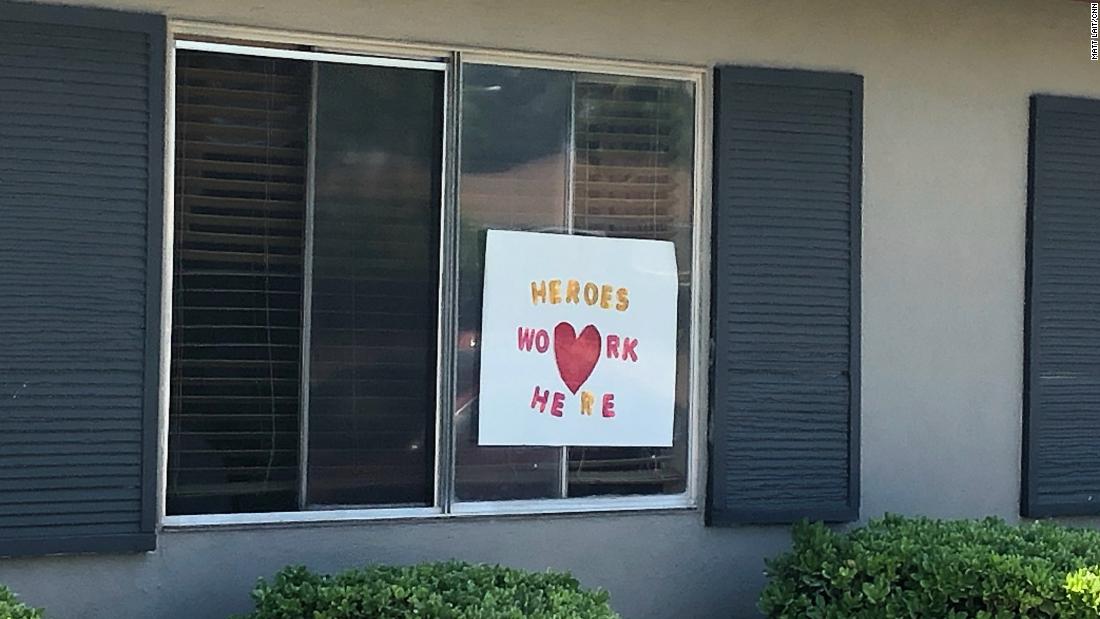 HEROES
WO RK
HERE
MATT LAIT/CNN